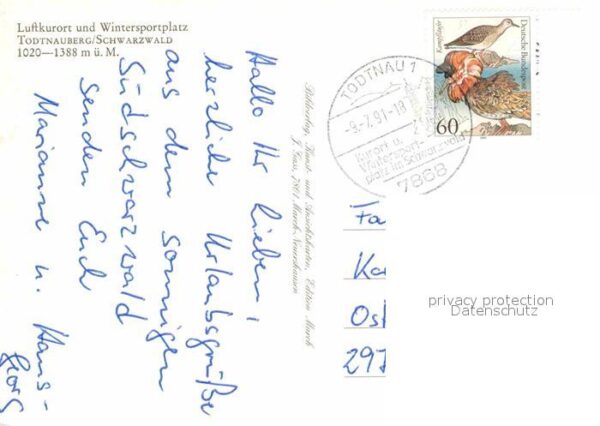 Luftkurort und Wintersportplatz
TODTNAUBERG/SCHWARZWALD
1020—1388 m ü. M.
Hallo Ihr Lieben,
herzliche Urlaubsgrüße
aus dem sonnigen
Südschwarzwald
senden Euch
Marianne u. Hans-
Georg
Bilderverlag, Kunst- und Ansichtskarten, Edition March
J. Fuss, 7801 March-Neuershausen
TODTNAU 1
-9.7.91-18
Kurort u.
Wintersport-
platz im Schwarzwald
7868
Deutsche Bundespost
Kampfläufer
60
Fa
Ka
Os
297
privacy protection
Datenschutz